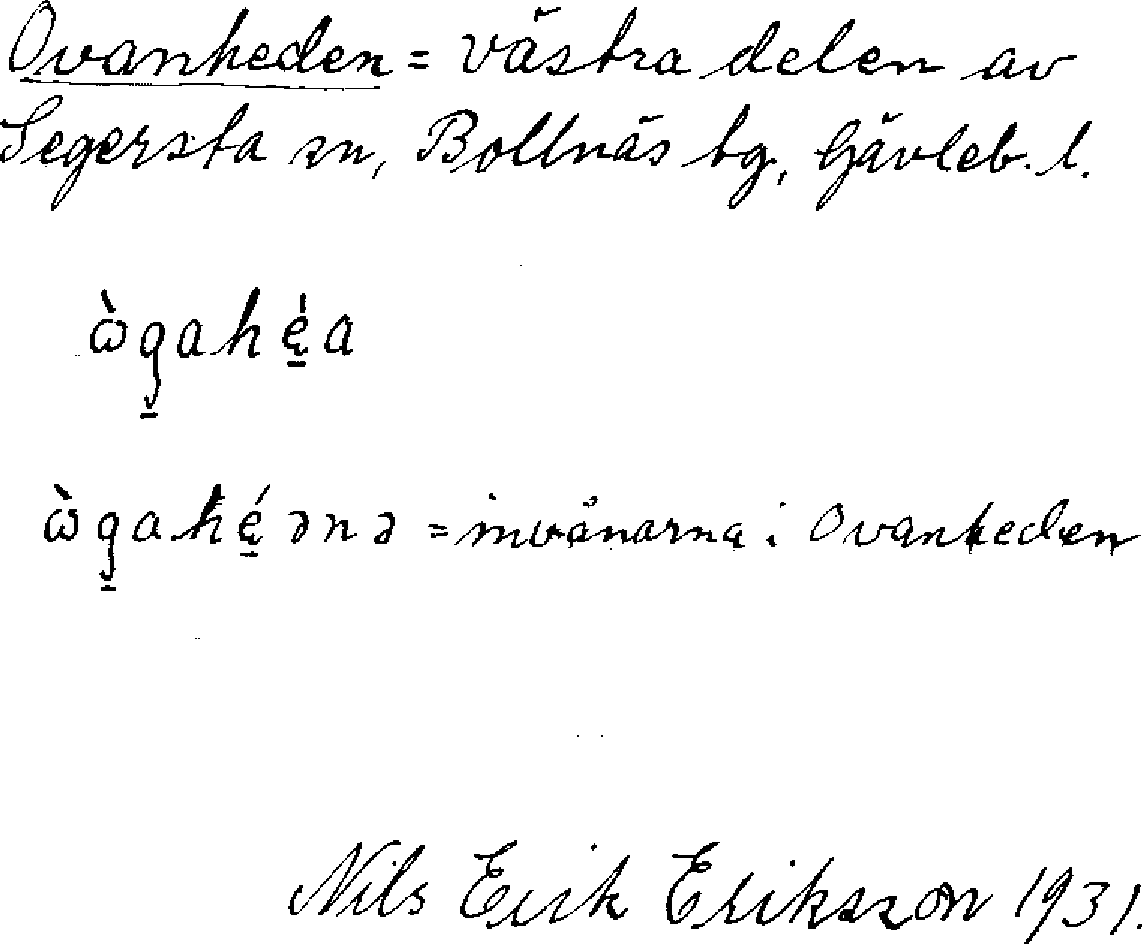 Ovanheden = västra delen av
Segersta sn, Bollnäs tg, Gävleb. l.
ὼgahę́a
ὼgahę́ənə = invånarna i Ovanheden
Nils Erik Eriksson 1931.